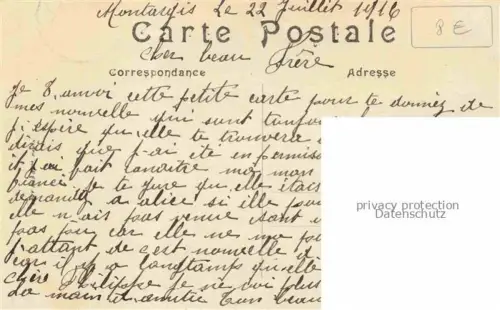 Montargis Le 22 Juillet 1916
8 €
Carte Postale
Cher beau Frère
Correspondance
Adresse
Je t'envoi cette petite carte pour te donnez de
mes nouvelle qui sont
j'espère qu'elle te trouvera
dirais que j'ai été en permiss
et j'ai fait conaitre mon
fiancé Je te jure qu'elle étais
demande a alice si elle
elle n'ais pas venue
pas car elle ne ma
j'attant de c'est nouvelle
car il y a longtemps qu'elle
Chère Philippe je ne voi plus
La main et amitié ton beau
privacy protection
Datenschutz